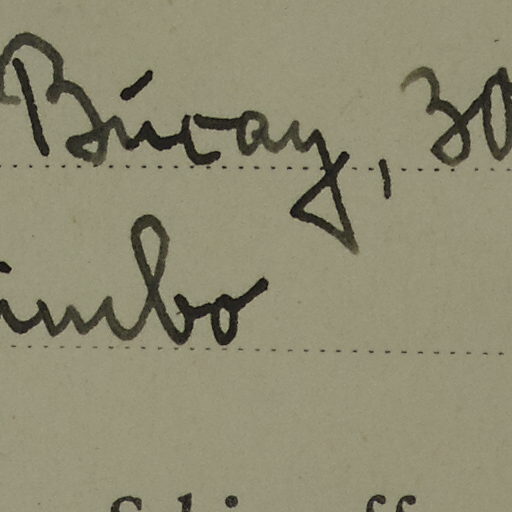 Búcay, 30
imbo